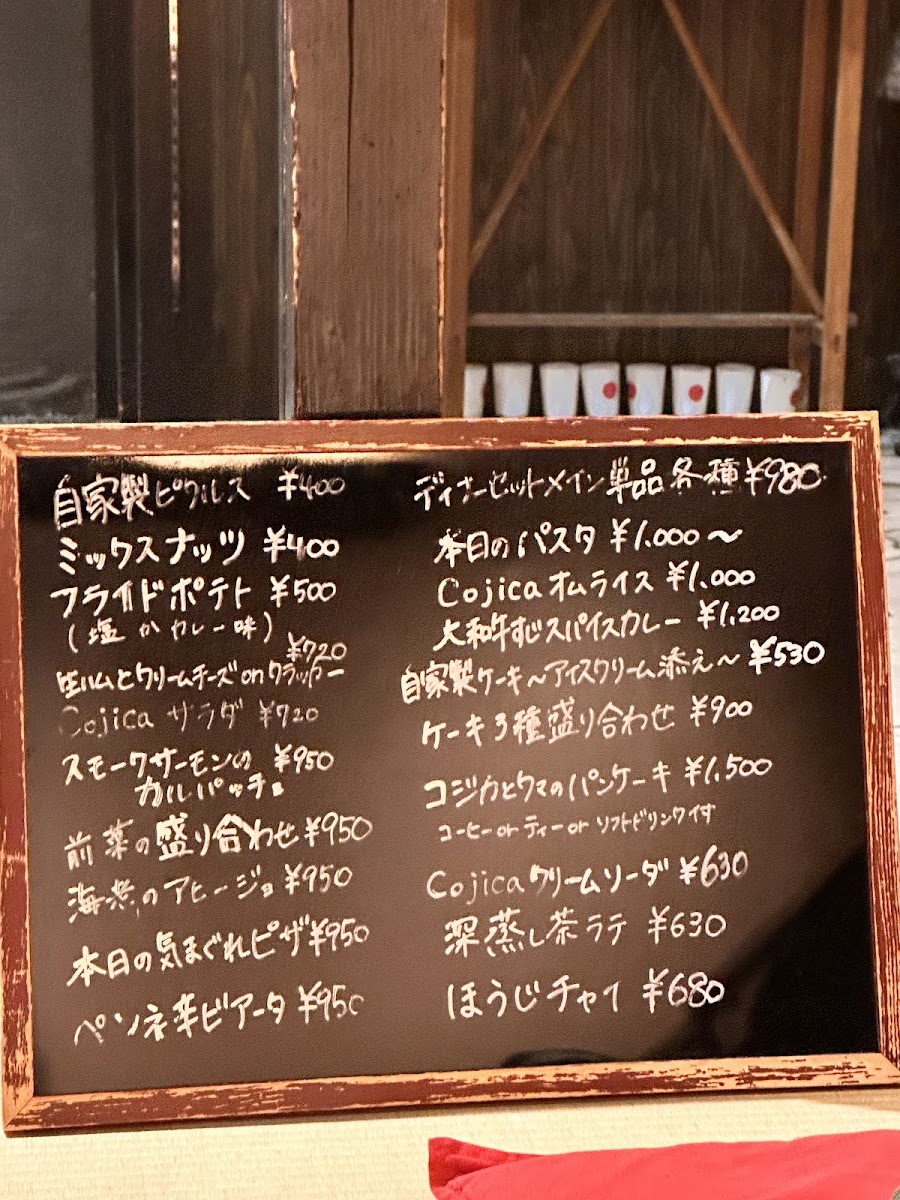 自家製ピクルス ¥400
ミックスナッツ ¥400
フライドポテト ¥500
(塩 か カレー味)
¥720
生ハムとクリームチーズonクラッカー
Cojica サラダ ¥720
スモークサーモンの ¥950
カルパッチョ
前菜の盛り合わせ ¥950
海老のアヒージョ ¥950
本日の気まぐれピザ ¥950
ペンネ辛ビアータ ¥950
ディナーセットメイン単品各種 ¥980
本日のパスタ ¥1.000〜
Cojicaオムライス ¥1.000
大和牛すじスパイスカレー ¥1.200
自家製ケーキ〜アイスクリーム添え〜 ¥530
ケーキ3種盛り合わせ ¥900
コジカとクマのパンケーキ ¥1.500
コーヒーorティーor ソフトドリンク付
Cojicaクリームソーダ ¥630
深蒸し茶ラテ ¥630
ほうじチャイ ¥680